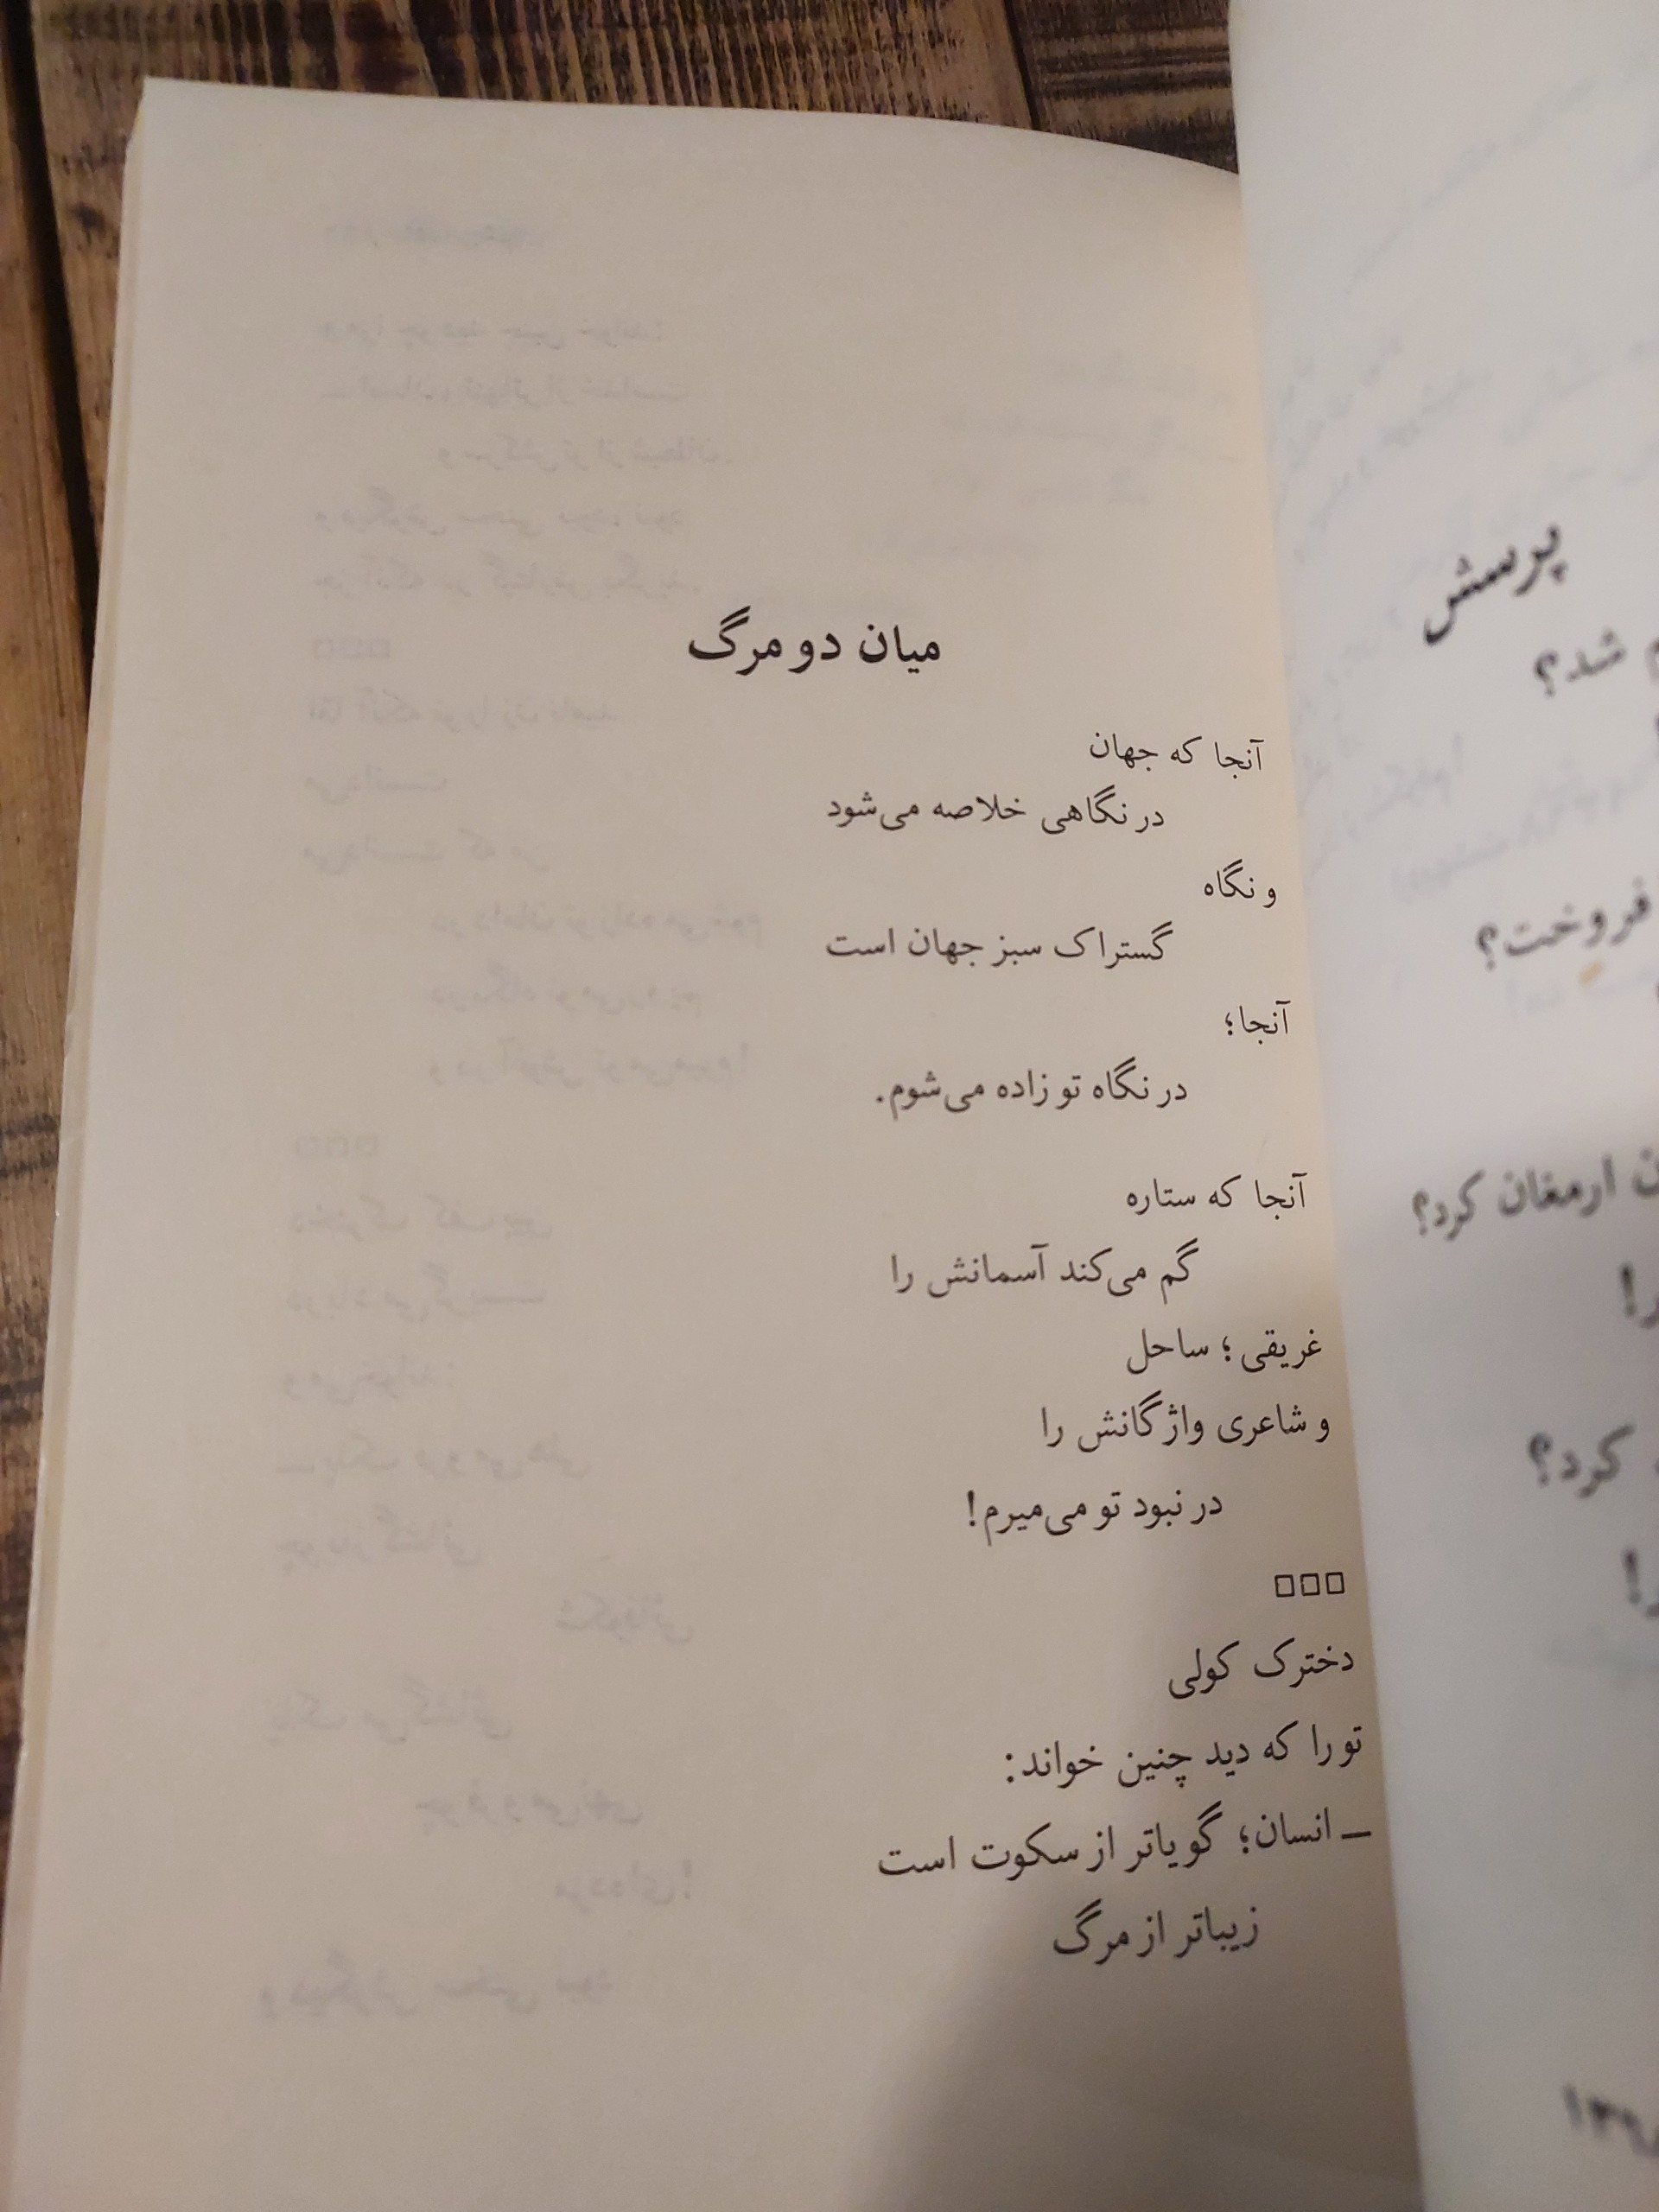 میان دو مرگ
آنجا که جهان
در نگاهی خلاصه می‌شود
و نگاه
گستراک سبز جهان است
آنجا؛
در نگاه تو زاده می‌شوم.
آنجا که ستاره
گم می‌کند آسمانش را
غریقی؛ ساحل
و شاعری واژگانش را
در نبود تو می‌میرم!
□□□
دخترک کولی
تو را که دید چنین خواند:
ـ انسان؛ گویاتر از سکوت است
زیباتر از مرگ
پرسش
شد؟
فروخت؟
ارمغان کرد؟
کرد؟